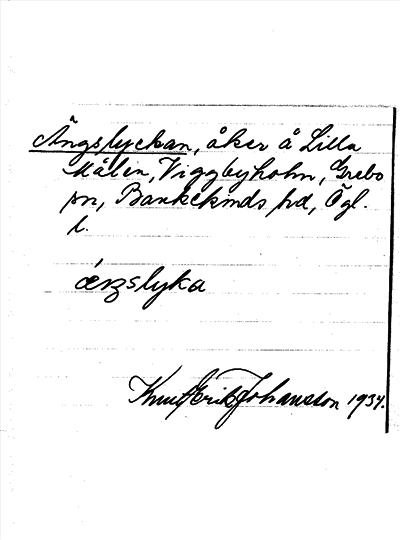 Ängslyckan, åker å Lilla
Målen, Viggbyholm, Grebo
sn, Bankekinds hd, Ögl.
l.
ǽŋslyka
Knut Erik Johansson 1934.